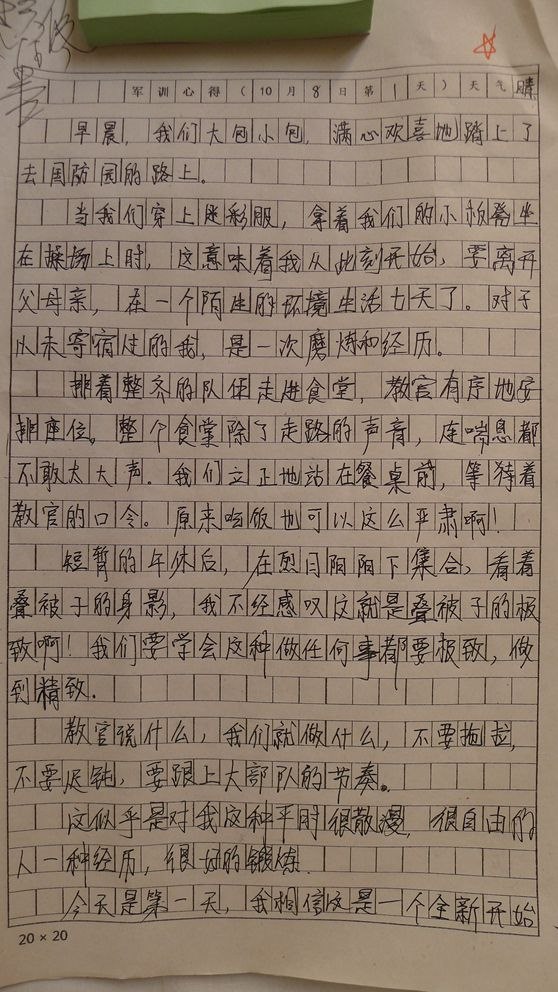 军训心得（10月8日第1天）天气晴
早晨，我们大包小包，满心欢喜地踏上了
去国防园的路上。
当我们穿上迷彩服，拿着我们的小板凳坐
在操场上时，这意味着我从此刻开始，要离开
父母亲，在一个陌生的环境生活七天了。对于
从未寄宿过的我，是一次磨炼和经历。
排着整齐的队伍走进食堂，教官有序地安
排座位。整个食堂除了走路的声音，连喘息都
不敢太大声。我们立正地站在餐桌前，等待着
教官的口令。原来吃饭也可以这么严肃啊！
短暂的午休后，在烈日阳阳下集合，看着
叠被子的身影，我不经感叹这就是叠被子的极
致啊！我们要学会这种做任何事都要极致，做
到精致.
教官说什么，我们就做什么，不要拖拉，
不要迟钝，要跟上大部队的节奏。
这似乎是对我这种平时很散漫，很自由的
人一种经历，很好的锻炼.
今天是第一天，我相信这是一个全新开始
20×20